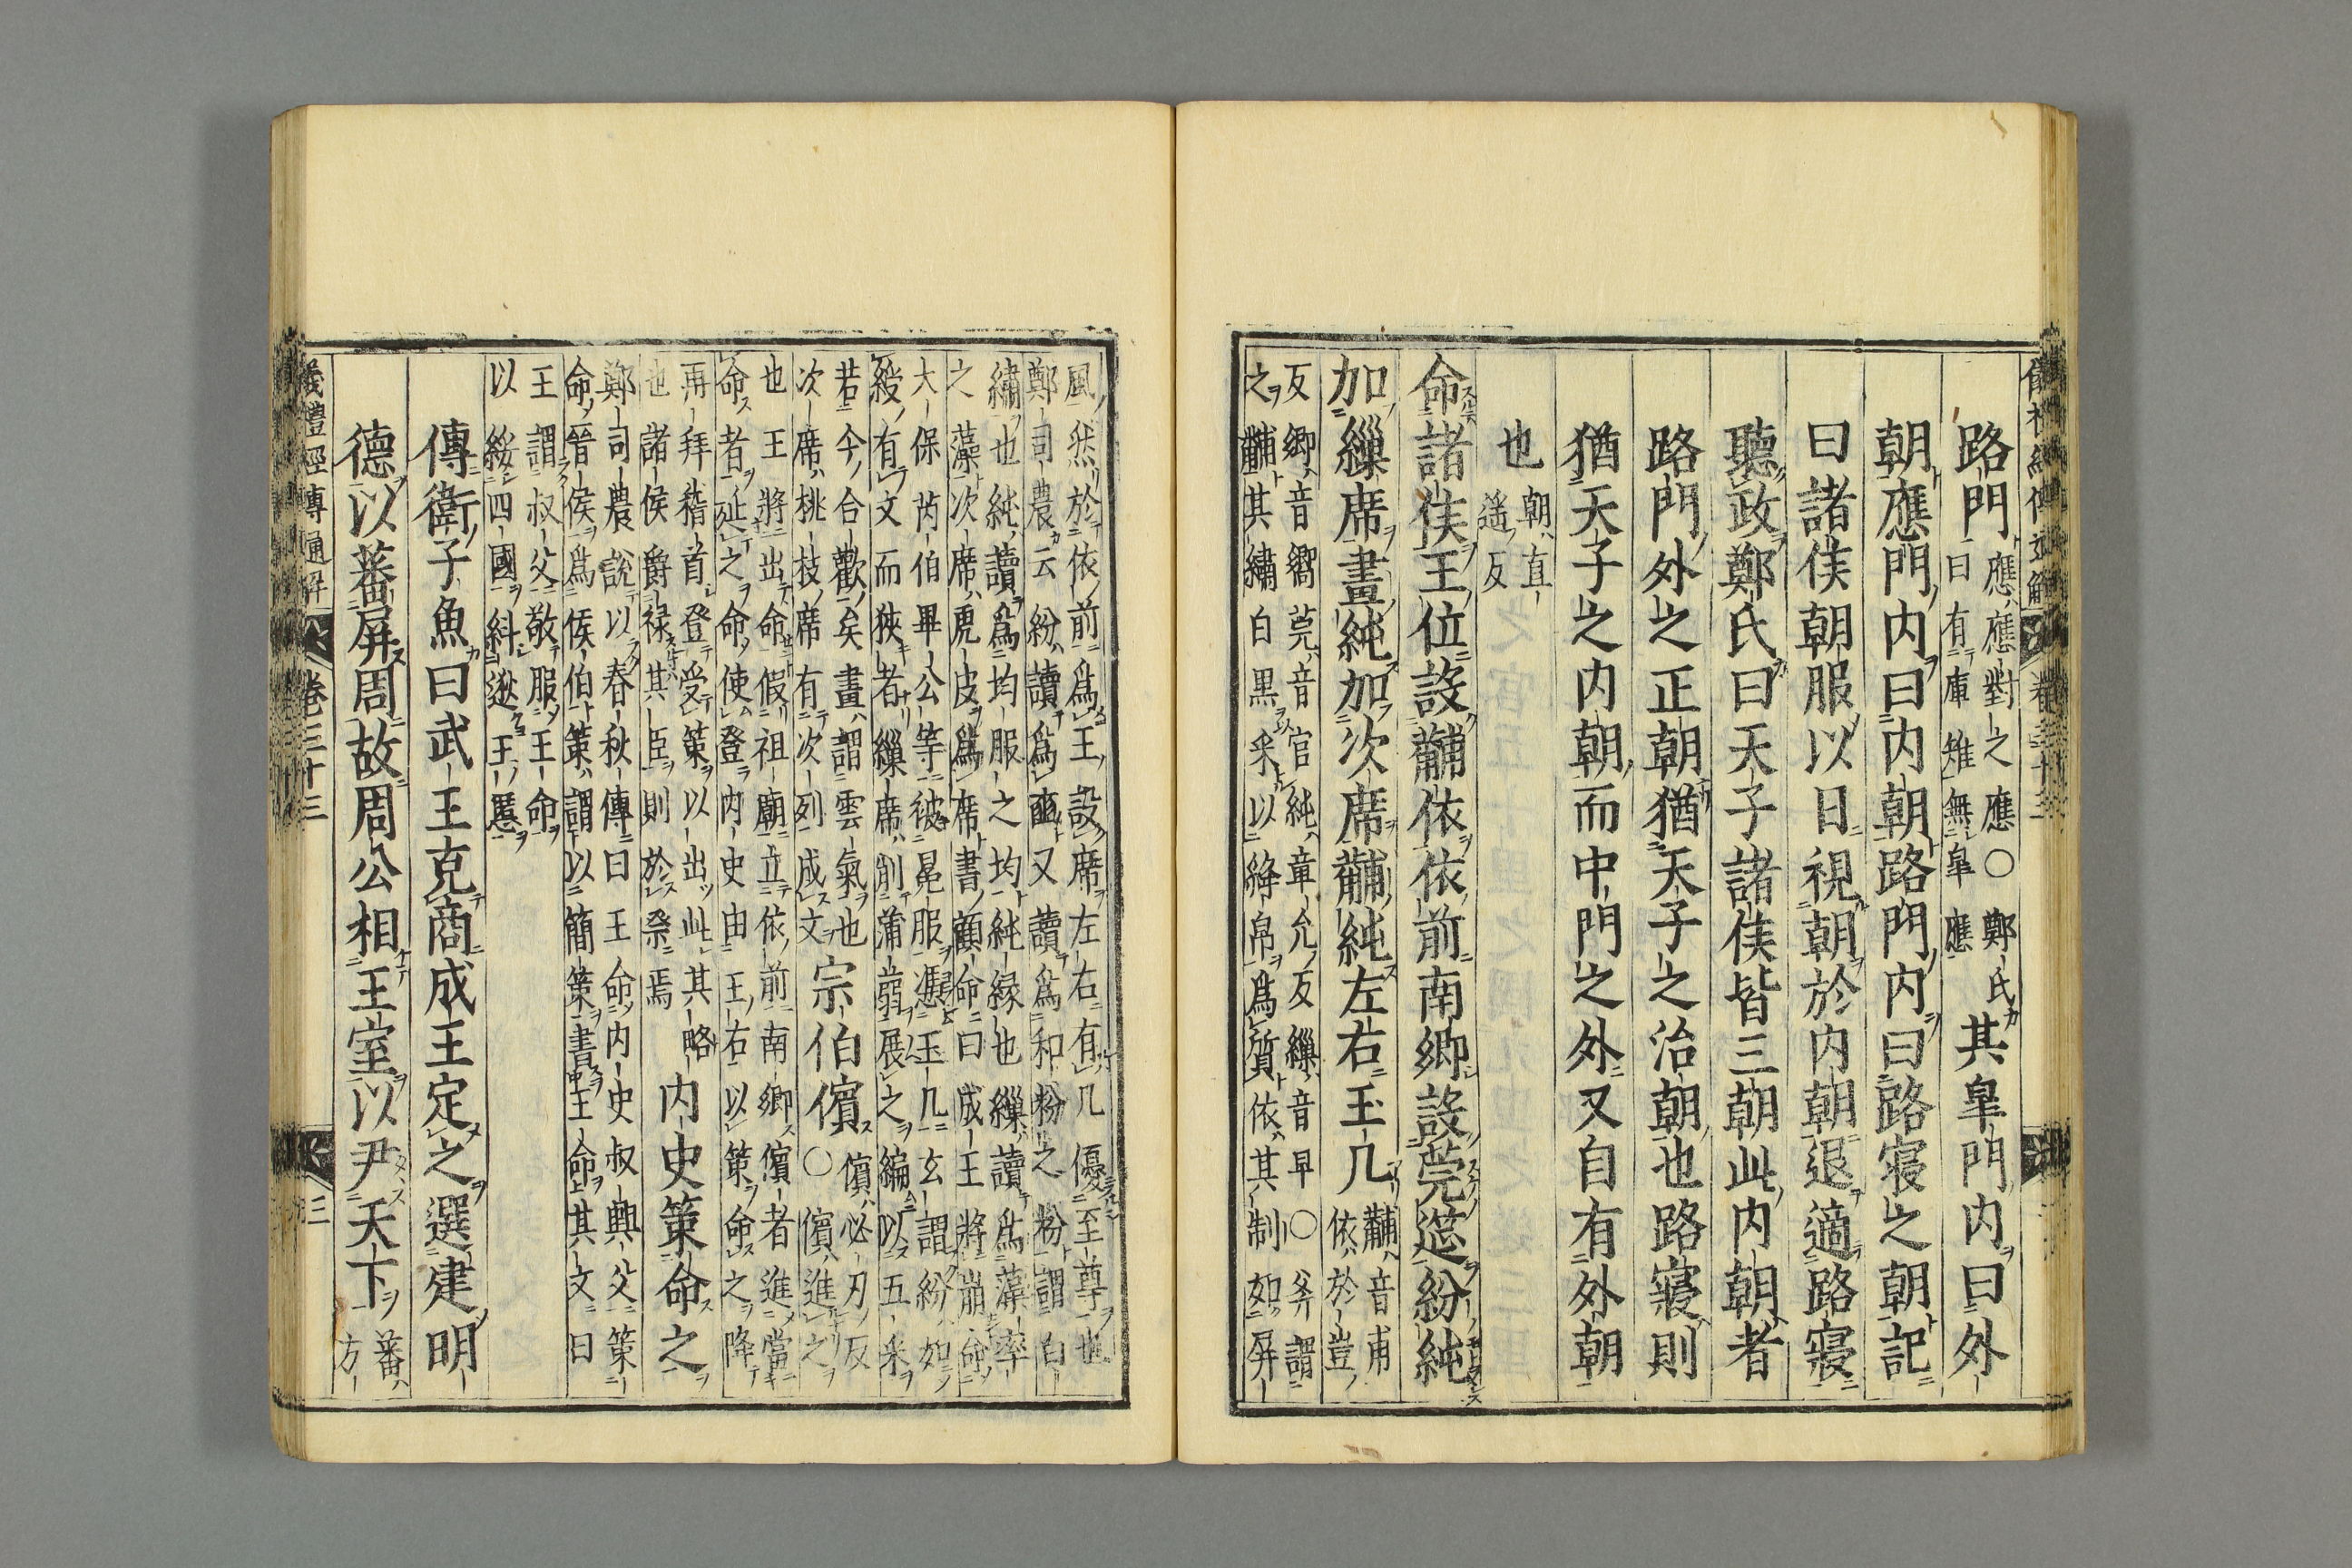 路門應應對之應○鄭氏曰有庫雉無皐應其皐門內曰外
朝應門內曰內朝路門內曰路寢之朝記
曰諸侯朝服以日視朝於內朝退適路寢
聽政鄭氏曰天子諸侯皆三朝此內朝者
路門外之正朝猶天子之治朝也路寢則
猶天子之內朝而中門之外又自有外朝
也朝直遥反
命諸侯王位設黼依依前南鄉設莞筵紛純
加繅席畫純加次席黼純左右玉几黼音甫依於豈
反鄉音嚮莞音官純章允反繅音早○斧謂
之黼其繡白黑采以絳帛爲質依其制如屏
風然於依前爲王設席左右有几優至尊也
鄭司農云紛讀爲豳又讀爲和粉之粉謂白
繡也純讀爲均服之均純緣也繅讀爲藻率
之藻次席虎皮爲席書顧命曰成王將崩命
大保芮伯畢公等被冕服憑玉几玄謂紛如
綬有文而狹者繅席削蒲蒻展之編以五采
若今合歡矣畫謂雲氣也
次席桃枝席有次列成文宗伯儐儐必刃反○儐進之
也王將出命假祖廟立依前南鄉儐者進當
命者延之命使登內史由王右以策命之降
再拜稽首登受策以出此其略
也諸侯爵祿其臣則於祭焉內史策命之
鄭司農說以春秋傳曰王命內史叔興父策
命晉侯爲侯伯策謂以簡策書王命其文曰
王謂叔父敬服王命
以綏四國糾逖王慝
傳衛子魚曰武王克商成王定之選建明
德以蕃屏周故周公相王室以尹天下蕃方
儀禮經傳通解 卷三十三 三